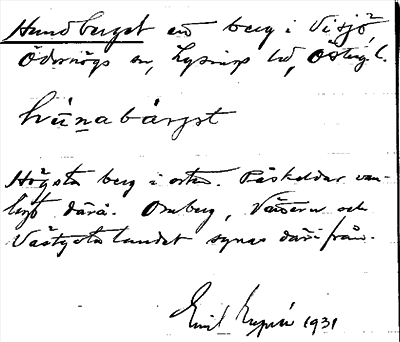 Hundberget ett berg i Visjö,
Ödeshögs sn, Lysings hd, Östergl.
hu̇nabärget
Högsta berg i orten. Påskeldar van-
ligt därå. Omberg, Vättern och
Västgötalandet synas därifrån.
Emil 1931